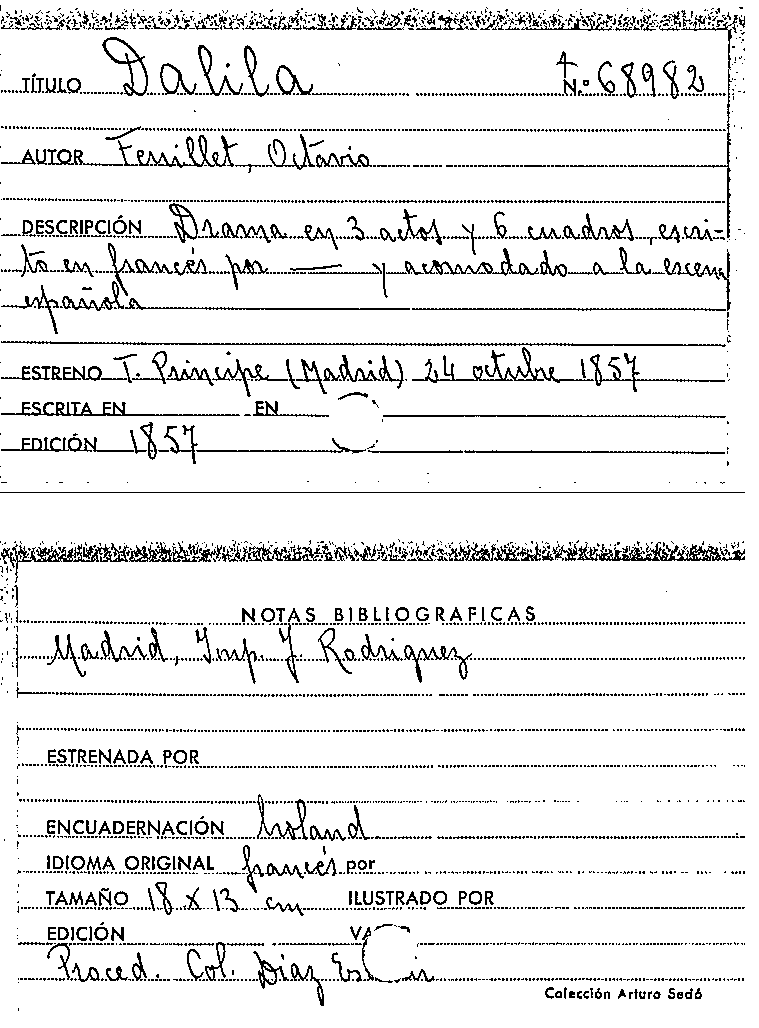 TÍTULO Dalila N.º 68982
AUTOR Feuillet, Octavio
DESCRIPCIÓN Drama en 3 actos y 6 cuadros, escri-
to en francés por — y acomodado a la escena
española
ESTRENO T. Principe (Madrid) 24 octubre 1857
ESCRITA EN EN
EDICIÓN 1857
NOTAS BIBLIOGRAFICAS
Madrid, Imp. J. Rodriguez
ESTRENADA POR
ENCUADERNACIÓN holand
IDIOMA ORIGINAL francés por
TAMAÑO 18 x 13 cm ILUSTRADO POR
EDICIÓN
Proced. Col. Díaz
Colección Arturo Sedó